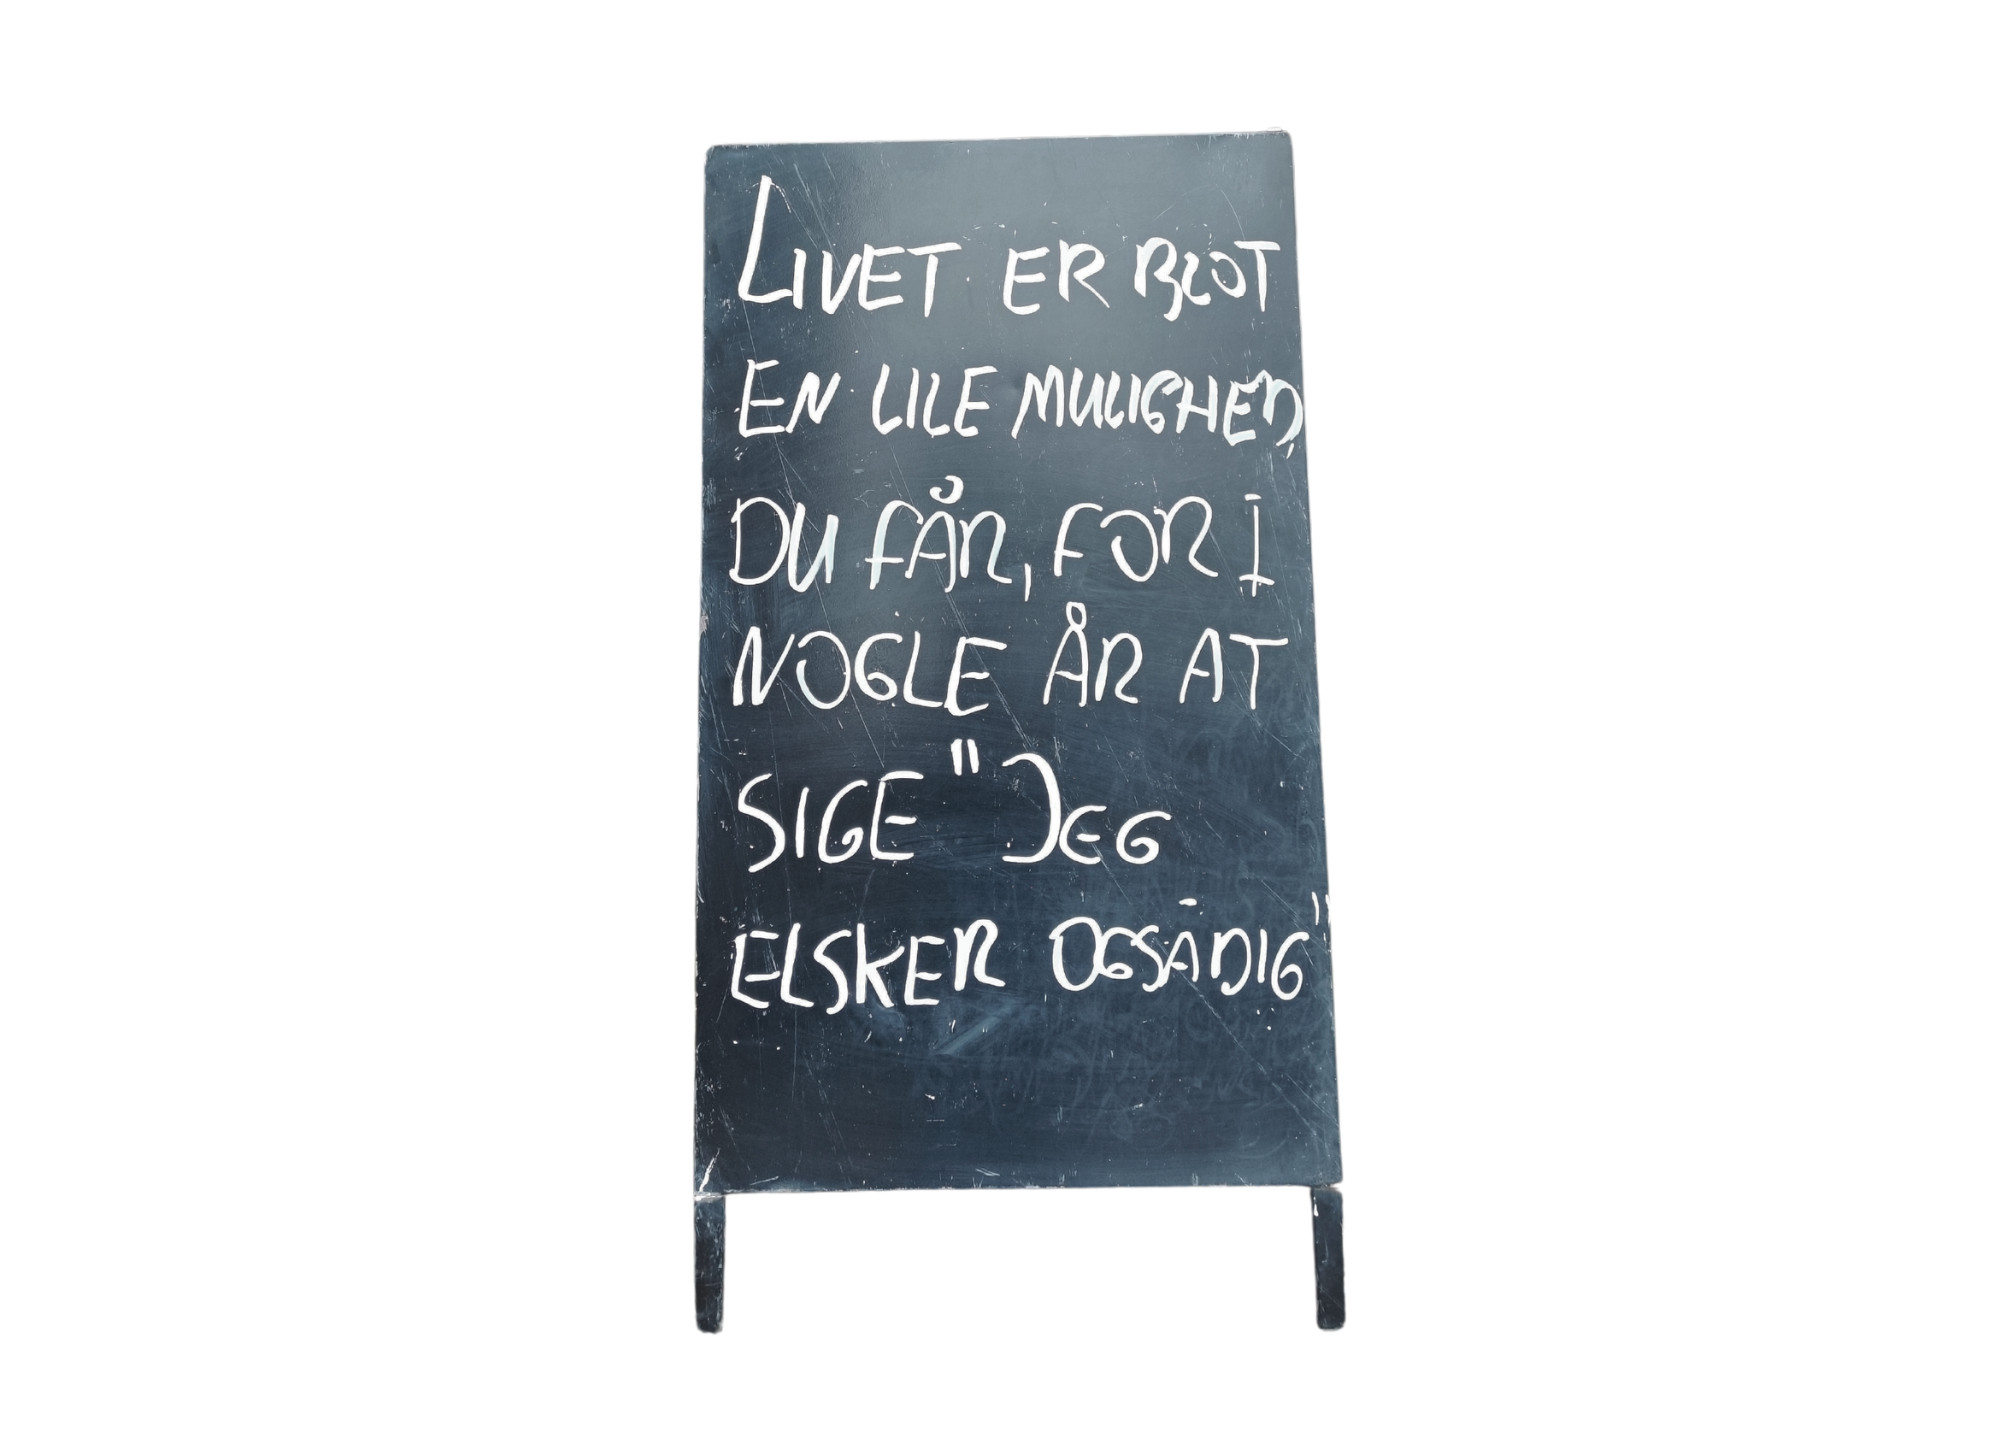 LIVET ER BLOT
EN LILE MULIGHED,
DU FÅR, FOR I
NOGLE ÅR AT
SIGE "JEG
ELSKER OGSÅ DIG"